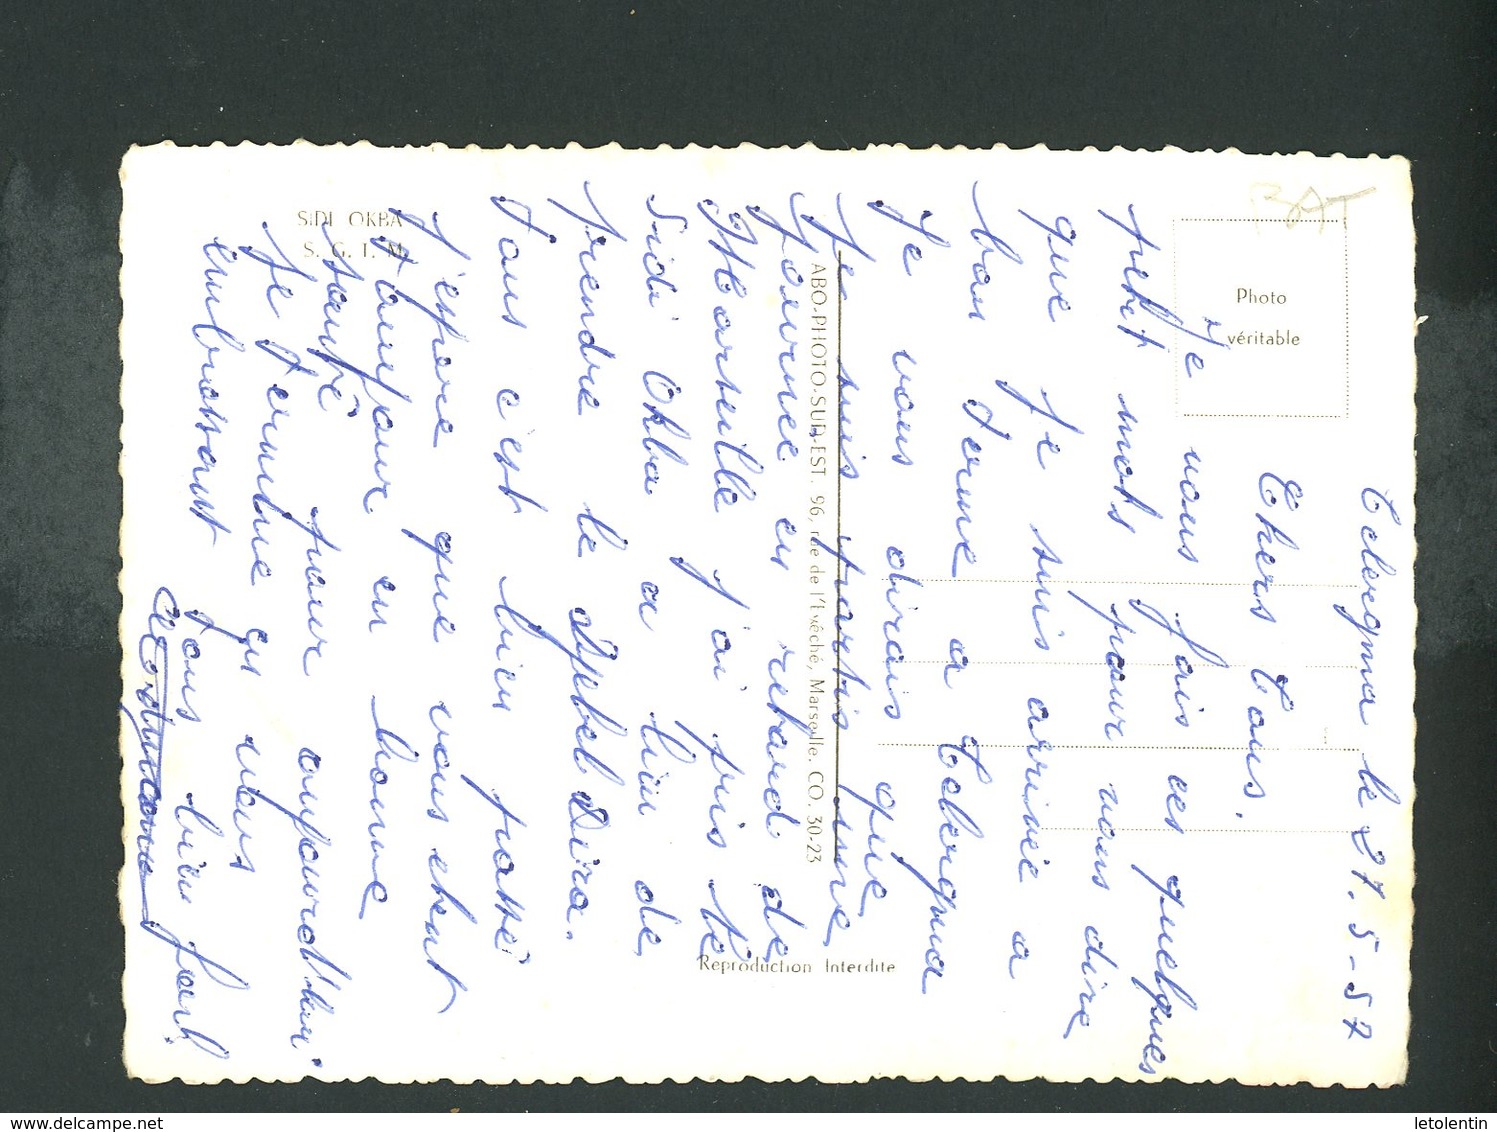 Telergma le 27.5-57
Chers tous.
Je vous fais ces quelques
petit mots pour vous dire
que je suis arrivée a
bon terme a Telergma
Je vous dirais que
Je suis partis une
journée en retard de
Marseille j'ai pris le
Sidi Okba a lieu de
prendre le Djebel Dira.
Tous c'est bien passé
j'espère que vous etent
toujour en bonne
santé pour aujourd'hui
je termine en vous
embrassant tous bien fort.
SIDI OKBA
S. G. T. M.
ABO-PHOTO-SUD-EST. 96, rue de l'Evêché, Marseille. CO. 30-23
Reproduction Interdite
Photo
véritable
BAT
www.delcampe.net
letolentin